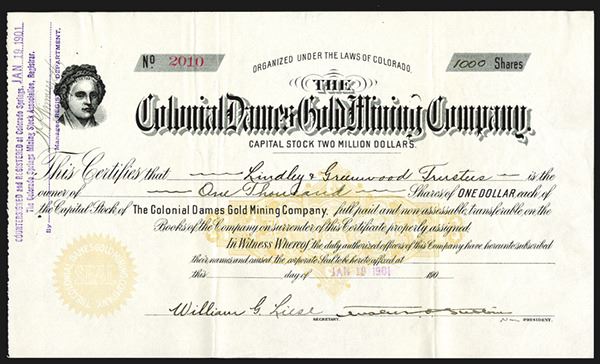 No 2010
ORGANIZED UNDER THE LAWS OF COLORADO.
1000 Shares
THE
Colonial Dames Gold Mining Company.
CAPITAL STOCK TWO MILLION DOLLARS.
COUNTERSIGNED and REGISTERED at Colorado Springs, JAN 19 1901
The Colorado Springs Mining Stock Association, Registrar.
By
Manager DEPARTMENT.
This Certifies that Lindley & Greenwood Trustees is the
owner of One Thousand Shares of ONE DOLLAR each of
the Capital Stock of The Colonial Dames Gold Mining Company, full paid and non assessable, transferable on the
Books of the Company on surrender of this Certificate properly assigned.
In Witness Whereof the duly authorized officers of this Company have hereunto subscribed
their names and caused the corporate Seal to be hereto affixed at
this day of JAN 19 1901 190
William G. Liese
SECRETARY. PRESIDENT.